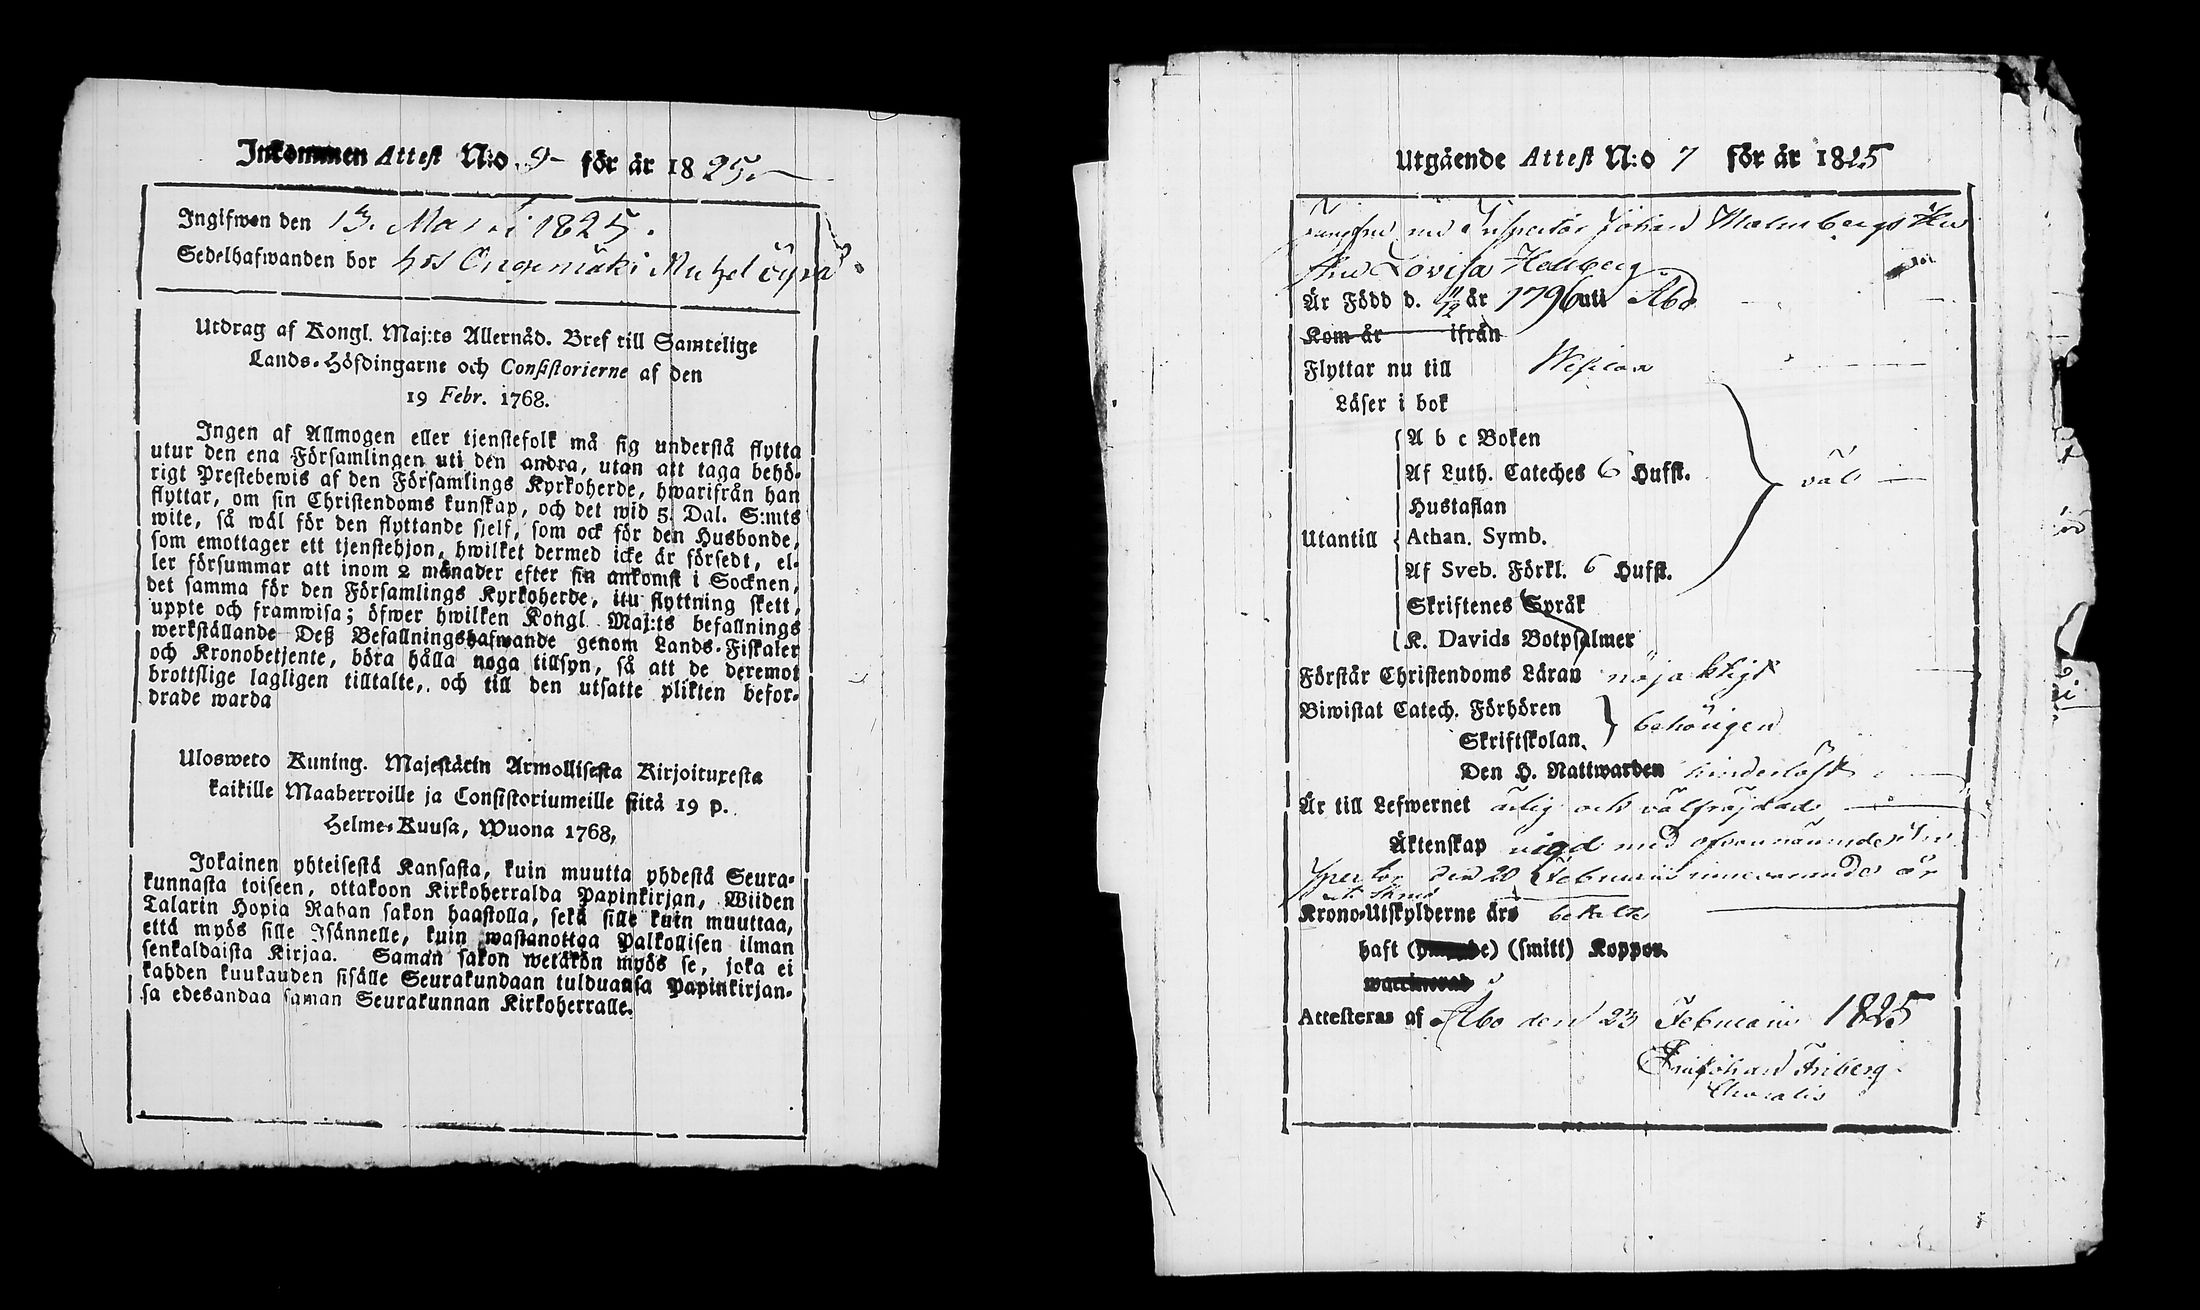 Inkommen Attest N:o 9 för år 1825.
Ingifwen den 13. Martii 1825.
Sedelhafwanden bor hos
Utdrag af Kongl. Maj:ts Allernåd. Bref till Samtelige
Lands-Höfdingarne och Consistorierne af den
19 Febr. 1768.
Ingen af Allmogen eller tjenstefolk må sig understå flytta
utur den ena Församlingen uti den andra, utan att taga behö-
rigt Prestebewis af den Församlings Kyrkoherde, hwarifrån han
flyttar, om sin Christendoms kunskap, och det wid 5. Dal. S:mts
wite, så wäl för den flyttande sjelf, som ock för den Husbonde,
som emottager ett tjenstehjon, hwilket dermed icke är försedt, el-
ler försummar att inom 2 månader efter sin ankomst i Socknen,
det samma för den Församlings Kyrkoherde, itu flyttning skett,
uppte och framwisa; öfwer hwilken Kongl. Maj:ts befallnings
werkställande Deß Befallningshafwande genom Lands-Fiskaler
och Kronobetjente, böra hålla noga tillsyn, så att de deremot
brottslige lagligen tilltalte, och till den utsatte plikten befor-
drade warda
Ulosweto Kuning. Majestätin Armollisesta Kirjoituxesta
kaikille Maaherroille ja Consistoriumeille siitä 19 p.
Helme-Kuusa, Wuona 1768,
Jokainen yhteisestä Kansasta, kuin muutta yhdestä Seura-
kunnasta toiseen, ottakoon Kirkoherralda Papinkirjan, Wiiden
Talarin Hopia Rahan sakon haastolla, sekä sille kuin muuttaa,
että myös sille Isännelle, kuin wastanottaa Palkollisen ilman
senkaldaista Kirjaa. Saman sakon wetäkön myös se, joka ei
kahden kuukauden sisälle Seurakundaan tulduansa Papinkirjan-
sa edesandaa saman Seurakunnan Kirkoherralle.
Utgående Attest N:o 7 för år 1825
Inspector Johan Malmbergs
Lovisa Hellberg
Är Född d. 11/12 år 1796 uti Åbo
Kom år ifrån
Flyttar nu till
Läser i bok
A b c Boken
Af Luth. Cateches 6 Hufst.
Hustaflan
väl
Utantill Athan. Symb.
Af Sveb. Förkl. 6 Hufst.
Skriftenes Språk
K. Davids Botpsalmer
Förstår Christendoms Läran nöjaktigt
Biwistat Catech. Förhören
Skriftskolan. behörigen
Den H. Nattwarden hinderlöst
Är till Lefwernet ärlig och välfrejdad
Äktenskap vigd med ofvannämnde In-
spector den 20 Februarii innevarande år
Krono-Utskylderne äro betalte
haft (smitt) Koppor.
Attesteras af Åbo den 23 Februarii 1825
Johan Friberg